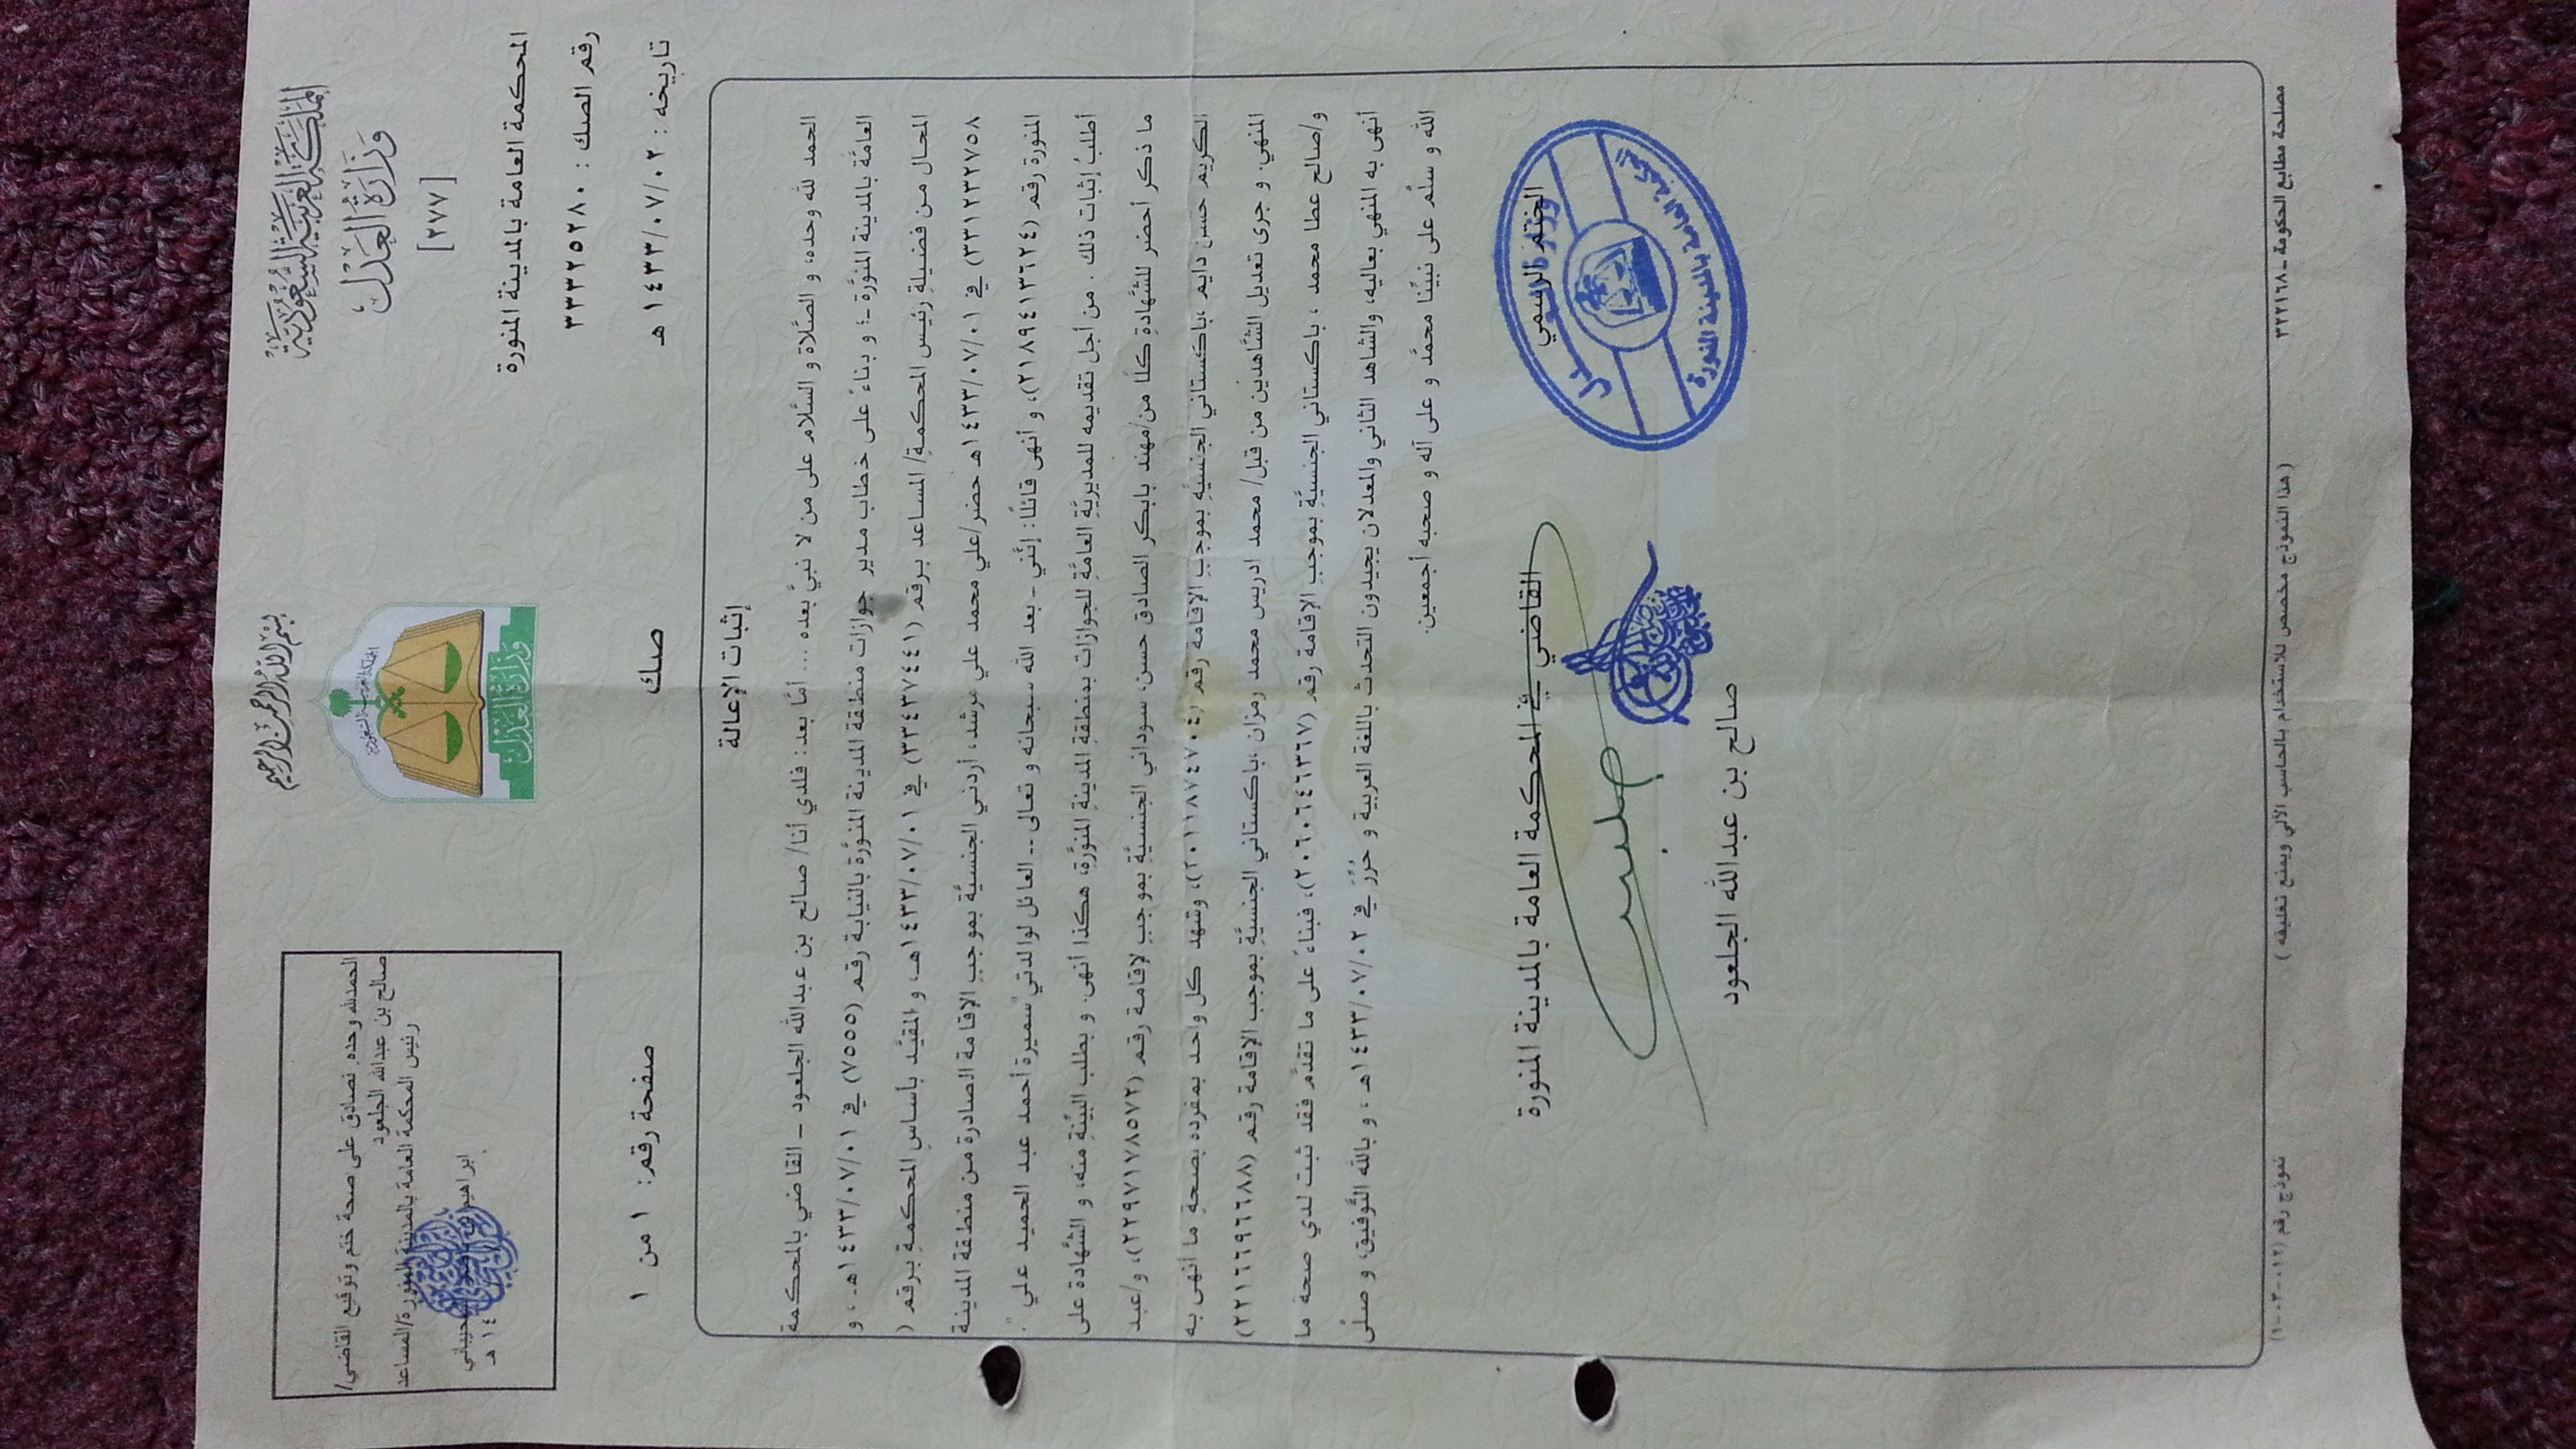 بسم الله الرحمن الرحيم
المملكة العربية السعودية
وزارة العدل
[٢٧٧]
المحكمة العامة بالمدينة المنورة
رقم الصك : ٣٣٢٥٢٨٠
تاريخه : ١٤٣٣/٠٧/٠٢ هـ
وزارة العدل
الحمدلله وحده نصادق على صحة ختم وتوقيع القاضي/
صالح بن عبدالله الجلعود
رئيس المحكمة العامة بالمدينة المنورة/المساعد
ابراهيم
١٤ هـ
صك
صفحة رقم: ١ من ١
إثبات الإعالة
الحمد لله وحده، و الصَّلاة و السَّلام على من لا نبيَّ بعده .... أمَّا بعد: فلدي أنا/ صالح بن عبدالله الجلعود – القاضي بالمحكمة
العامَّة بالمدينة المنوَّرة -؛ و بناءً على خطاب مدير جوازات منطقة المدينة المنوَّرة بالنيابة رقم (٧٥٥٥) في ١٤٣٣/٠٧/٠١هـ ، و
المحال من فضيلةِ رئيس المحكمةِ/ المساعد برقم (٣٣٤٣٧٤٤١) في ١٤٣٣/٠٧/٠١هـ، و المقيَّد بأساسِ المحكمةِ برقم (
٣٣١٢٣٢٧٥٨) في ١٤٣٣/٠٧/٠١هـ حضر/علي محمد علي مرشد، أردني الجنسيَّة بموجبِ الإقامة الصادرة من منطقة المدينة
المنورة رقم (٢١٨٩٤١٣٦٢٤)، و أنهى قائلًا: إنَّني – بعد الله سبحانه و تعالى -- العائل لوالدتي "سميرة أحمد عبد الحميد علي ".
أطلبُ إثبات ذلك . من أجل تقديمه للمديريَّةِ العامَّةِ للجوازات بمنطقةِ المدينةِ المنوَّرةِ، هكذا أنهى. و بطلب البيِّنةِ منه، و الشَّهادة على
ما ذكر أحضر للشَّهادةِ كلًا من/مهند بابكر الصادق حسن، سوداني الجنسيَّةِ بموجبِ لإقامة رقم (٢٢٩٧١٧٨٥٧٢)، و/عبد
الكريم حسن دايم ،باكستاني الجنسيَّةِ بموجبِ الإقامة رقم (٢٠١١٨٧٤٧٠٤)، وشهد كل واحد بمفرده بصحةِ ما أنهى به
المنهي. و جرى تعديل الشَّاهدَين من قبل/ محمد ادريس محمد رمزان ،باكستاني الجنسيَّةِ بموجبِ الإقامة رقم (٢٢١٦٦٩٦٦٨٨)
و/صالح عطا محمد ، باكستاني الجنسيَّةِ بموجبِ الإقامة رقم (٢٠٦٠٦٤٦٣٦٧)، فبناءً على ما تقدَّم فقد ثبت لدي صحة ما
أنهى به المنهي بعاليه، والشاهد الثاني والمعدلان يجيدون التحدث باللغة العربية و حُرِّرَ في ١٤٣٣/٠٧/٠٢هـ ، و بالله التَّوفيق، و صلَّى
الله و سلَّم على نبيِّنا محمَّد و على آله و صحبه أجمعين.
الختم الرسمي
القاضي في المحكمة العامة بالمدينة المنورة
وزارة العدل
المحكمة العامة بالمدينة المنورة
صالح بن عبدالله الجلعود
مصلحة مطابع الحكومة - ٣٢٢١٦٨
( هذا النموذج مخصص للاستخدام بالحاسب الآلي ويمنع تغليفه )
نموذج رقم (١٢-٠٣-٠١)